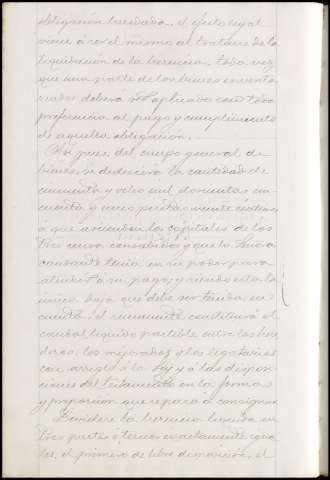 obligación heredada, el efecto legal
viene á ser el mismo al tratarse de la
liquidación de la herencia, toda vez
que una parte de los bienes inventa
riados deberá ser aplicada con toda
preferencia al pago y cumplimiento
de aquella obligación.
Así pues, del cuerpo general de
bienes, se deducirá la cantidad de
cincuenta y ocho mil doscientas cin
cuenta y cinco pesetas veinte céntimos
a que ascienden los capitales de los
tres censos consabidos y que la Señora
causante tenía en su poder para
atender á su pago, y siendo esta la
única baja que debe ser tenida en
cuenta, el remanente constituirá el
caudal líquido partible entre los here
deros, los mejorados y los legatarios
con arreglo á la Ley y á las disposi
ciones del testamento en la forma
y proporción que se pasa á consignar.
Divídese la herencia líquida en
tres partes ó tercios exactamente igua
les, el primero de libre disposición, el